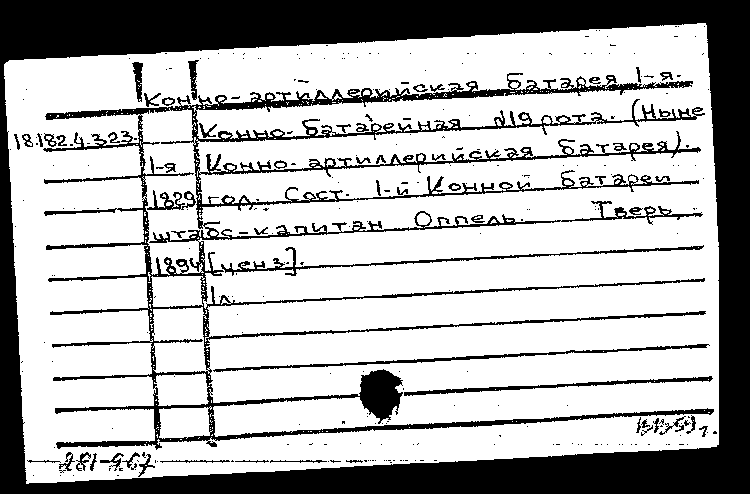 Конно-артиллерийская батарея, 1-я.
18.182.4.323. Конно-батарейная №19 рота. (Ныне
1-я Конно-артиллерийская батарея).
1829 год. Сост. 1-й Конной батареи
штабс-капитан Оппель. Тверь,
1894 [ценз.].
1л.
281-967